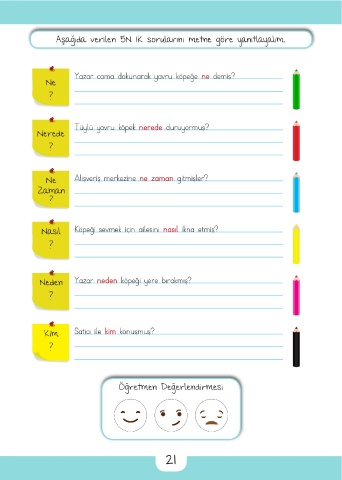 Aşağıda verilen 5N 1K sorularını metne göre yanıtlayalım.
Ne
?
Yazar cama dokunarak yavru köpeğe ne demiş?
Nerede
?
Tüylü yavru köpek nerede duruyormuş?
Ne
Zaman
?
Alışveriş merkezine ne zaman gitmişler?
Nasıl
?
Köpeği sevmek için ailesini nasıl ikna etmiş?
Neden
?
Yazar neden köpeği yere bırakmış?
Kim
?
Satıcı ile kim konuşmuş?
Öğretmen Değerlendirmesi
21